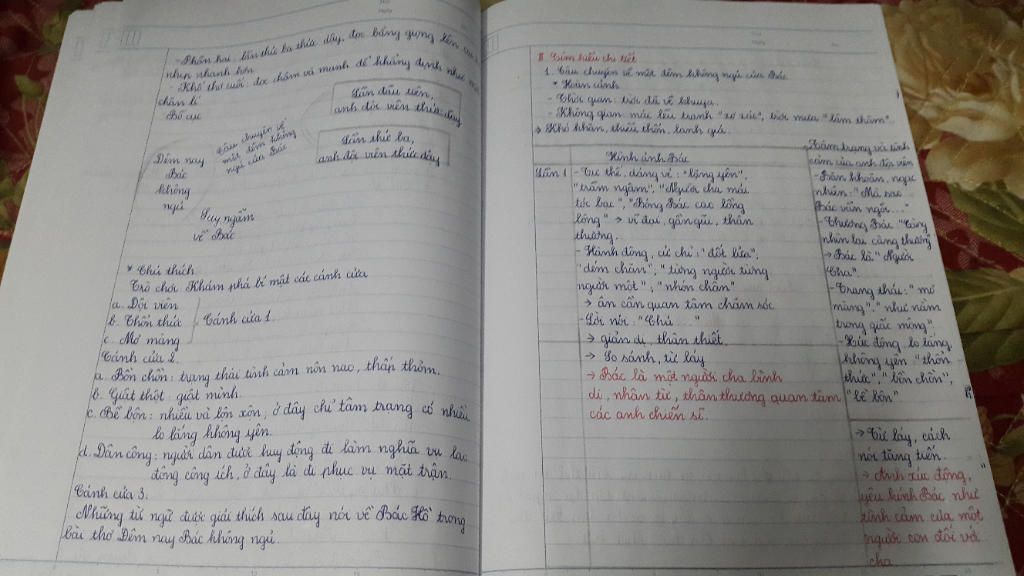 - Phần hai: lần thứ ba thức dậy, đọc bằng giọng
nhịp nhanh hơn.
- Khổ thơ cuối: đọc chậm và mạnh để khẳng định như
chân lí
Bố cục
Đêm nay
Bác
không
ngủ
Câu chuyện về
một đêm không
ngủ của Bác
Lần đầu tiên,
anh đội viên thức dậy
Lần thứ ba,
anh đội viên thức dậy
Suy ngẫm
về Bác
* Chú thích
Trò chơi Khám phá bí mật các cánh cửa
a. Đội viên
b. Thổn thức
c. Mơ màng
Cánh cửa 1.
Cánh cửa 2.
a. Bồn chồn: trạng thái tình cảm nôn nao, thấp thỏm.
b. Giật thột: giật mình.
c. Bề bộn: nhiều và lộn xộn, ở đây chỉ tâm trạng có nhiều
lo lắng không yên.
d. Dân công: người dân được huy động đi làm nghĩa vụ lao
động công ích, ở đây là đi phục vụ mặt trận.
Cánh cửa 3.
Những từ ngữ được giải thích sau đây nói về Bác Hồ trong
bài thơ Đêm nay Bác không ngủ.
II. Tìm hiểu chi tiết
1. Câu chuyện về một đêm không ngủ của Bác
* Hoàn cảnh
- Thời gian: trời đã về khuya.
- Không gian: mái lều tranh "xơ xác", trời mưa "lâm thâm".
→ Khó khăn, thiếu thốn, lạnh giá.
Hình ảnh Bác
Lần 1
- Tư thế, dáng vẻ: "lặng yên",
"trầm ngâm", "Người cha mái
tóc bạc", "Bóng Bác cao lồng
lộng" → vĩ đại, gần gũi, thân
thương.
- Hành động, cử chỉ: "đốt lửa",
"dém chăn", "từng người từng
người một", "nhón chân"
→ ân cần quan tâm chăm sóc
- Lời nói: "Chú ..."
→ giản dị, thân thiết.
→ So sánh, từ láy
→ Bác là một người cha bình
dị, nhân từ, thân thương quan tâm
các anh chiến sĩ.
Tâm trạng và tình
cảm của anh đội viên
- Băn khoăn, ngạc
nhiên: "Mà sao
Bác vẫn ngồi..."
- Thương Bác: "Càng
nhìn lại càng thương"
→ Bác là "Người
Cha".
- Trạng thái: "mơ
màng", "như nằm
trong giấc mộng".
- Xúc động, lo lắng,
không yên: "thổn
thức", "bồn chồn",
"bề bộn"
→ Từ láy, cách
nói tăng tiến.
→ Anh xúc động,
yêu kính Bác như
tình cảm của một
người con đối với
cha